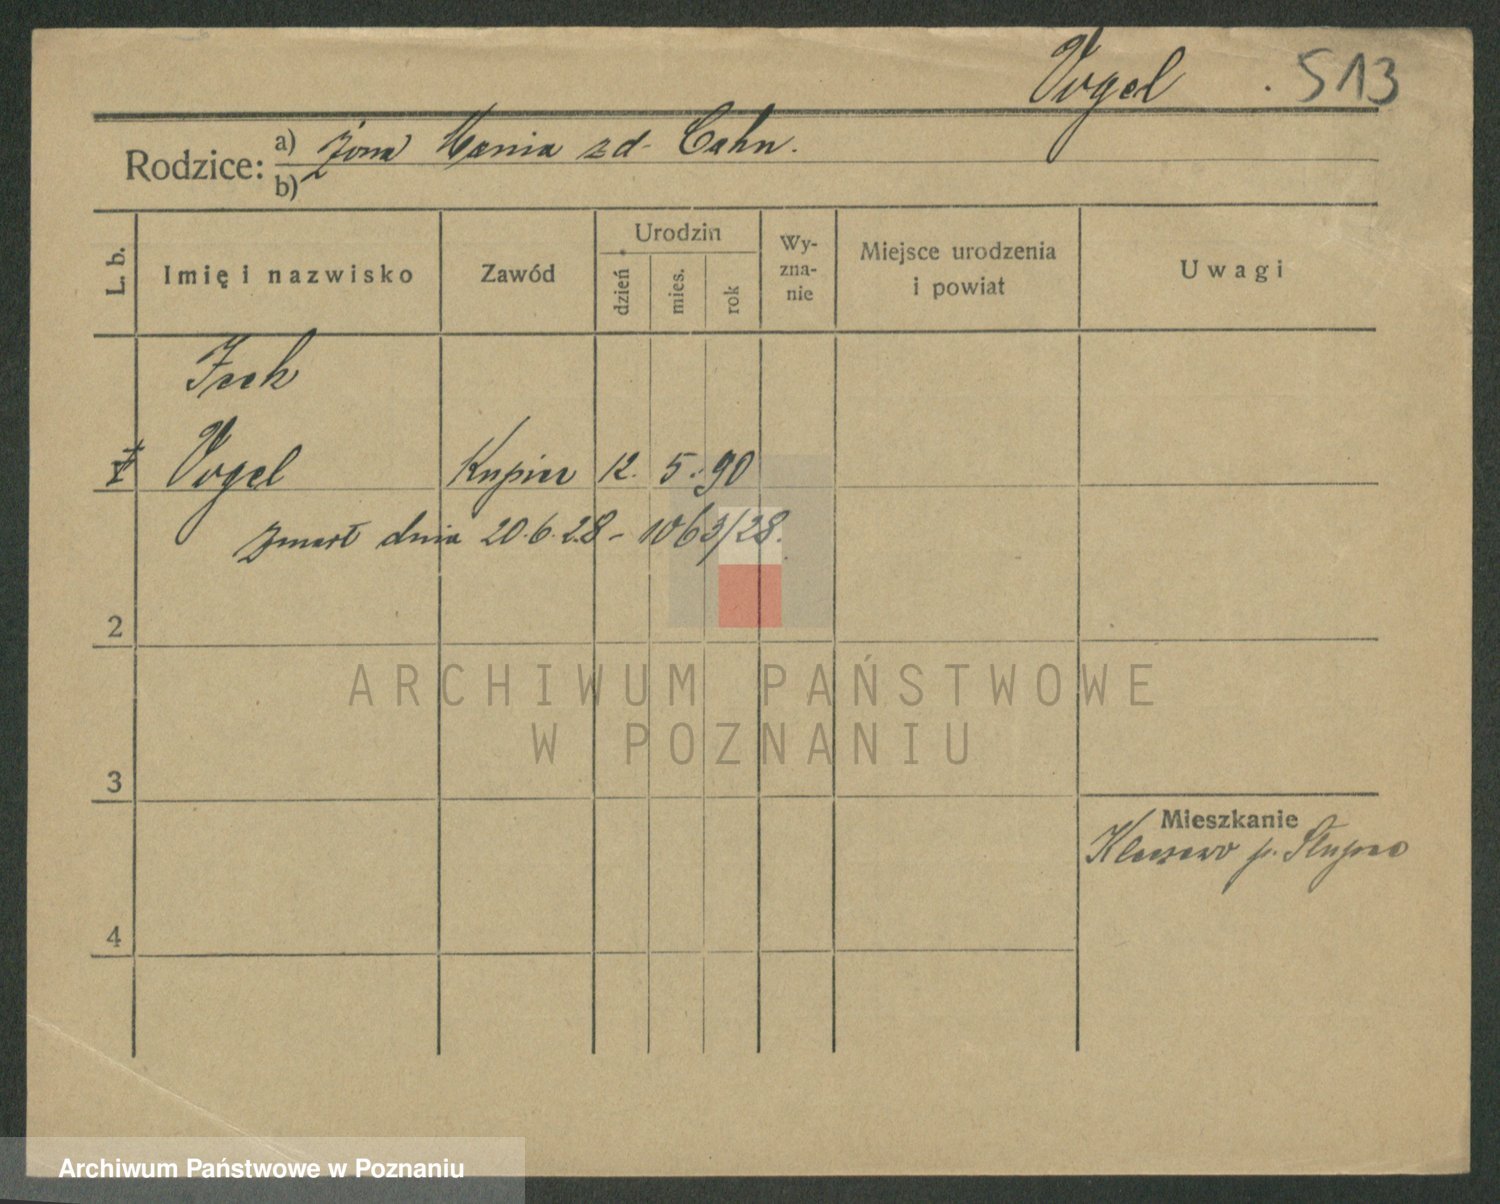 Vogel . 513
Rodzice: a) żona Mania zd. Cahn.
b)
L. b. Imię i nazwisko Zawód Urodzin dzień mies. rok Wyznanie Miejsce urodzenia i powiat Uwagi
Vogel Kupiec 12. 5. 90
zmarł dnia 20.6.28 – 1063/28.
2
ARCHIWUM PAŃSTWOWE
W POZNANIU
3
Mieszkanie
p. Słupca
4
Archiwum Państwowe w Poznaniu